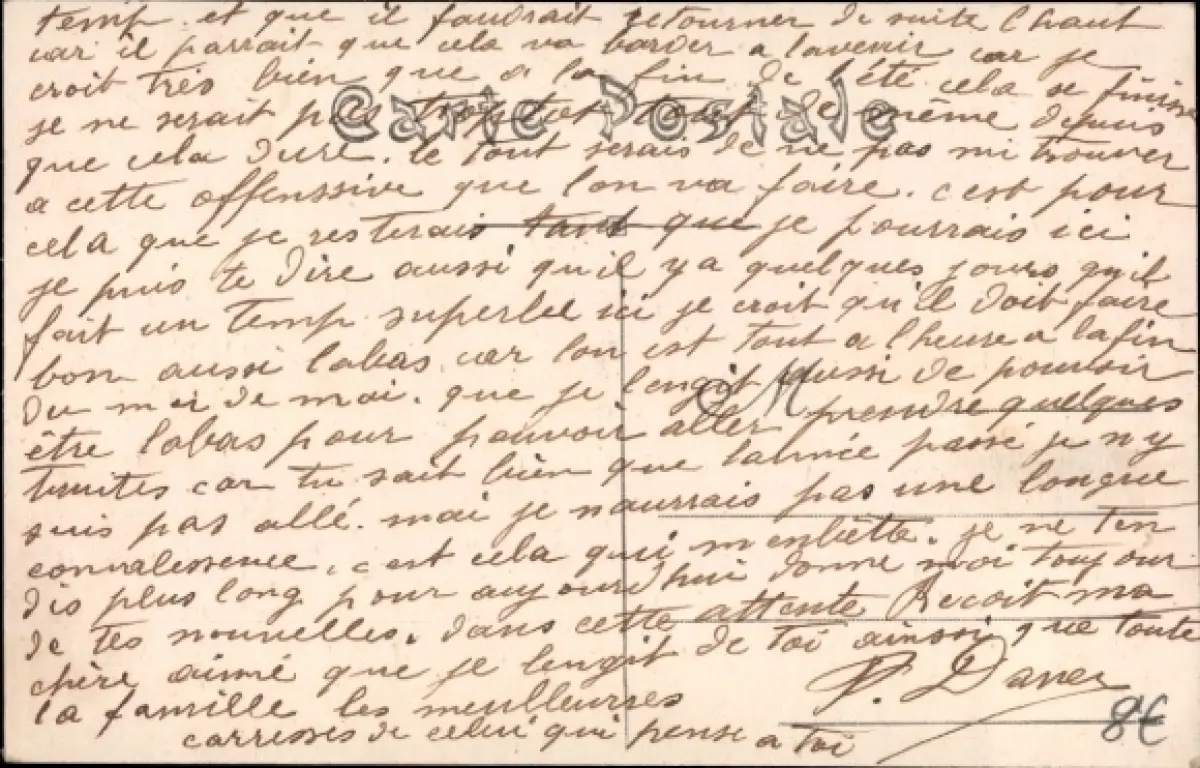 temp. et que il faudrait retourner de suite l haut
car il parrait que cela va barder a lavenir car je
croit très bien que a la fin de l'été cela se finisse
Carte Postale
je ne serait pas trop tot tout de même depuis
que cela dure. le tout serais de ne pas mi trouver
a cette offenssive que lon va faire. c est pour
cela que je resterais tant que je pourrais ici
je puis te dire aussi qu'il y a quelques jours qu'il
fait un temp superbe ici je croit qu'il doit faire
bon aussi labas car lon est tout a l heure a la fin
du moi de mai. que je lengit aussi de pouvoir
M
être labas pour pouvoir aller prendre quelques
truites car tu sait bien que lannée passé je n y
suis pas allé. mai je naurrais pas une longue
convalessence, c est cela qui m enbètte. je ne ten
dis plus long pour aujourd hui donne moi toujour
de tes nouvelles. dans cette attente Recoit ma
chère aimé que je lengit de toi ainssi que toute
la famille les meulleurses
carresses de celui qui pense a toi
P.
8€